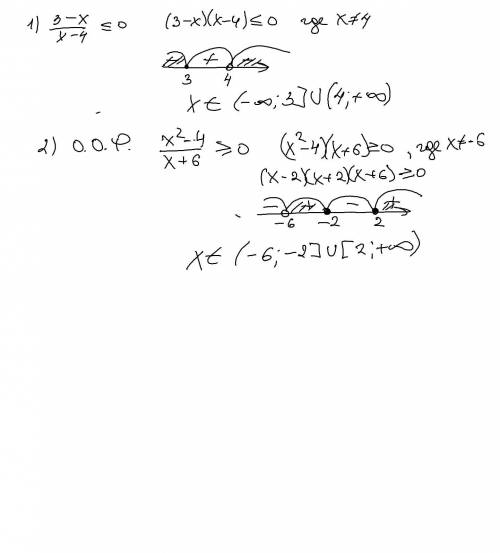 1) (3-x)/(x-4) ≤ 0 (3-x)(x-4) ≤ 0 где x≠4
+ + -
3 4
x ∈ (-∞; 3] ∪ (4; +∞)
2) О.О.Ф. (x²-4)/(x+6) ≥ 0 (x²-4)(x+6) ≥ 0, где x≠-6
(x-2)(x+2)(x+6) ≥ 0
- + - +
-6 -2 2
x ∈ (-6; -2] ∪ [2; +∞)